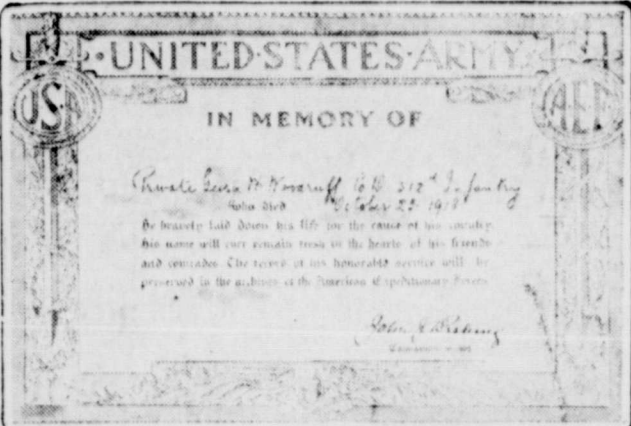 UNITED·STATES·ARMY
USA
A.E.F.
IN MEMORY OF
Private W. Woodruff Co D. 312th Infantry
who died October 25 1918
He bravely laid down his life for the cause of his country.
His name will ever remain fresh in the hearts of his friends
and comrades. The record of his honorable service will be
preserved in the archives of the American Expeditionary Forces.
John J. Pershing